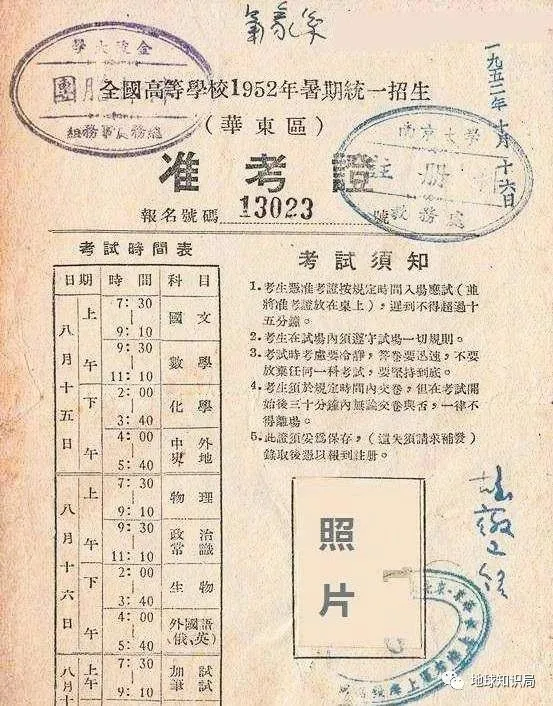 金陵大學
一九五二年十月十六日
全國高等學校1952年暑期統一招生
(華東區)
南京大學
註册
教務處
准考證
報名號碼 13023 號
考試時間表
日期 時間 科目
八月十五日
上午
7:30 — 9:10 國文
9:30 — 11:10 數學
下午
2:00 — 3:40 化學
4:00 — 5:40 中外史地
八月十六日
上午
7:30 — 9:10 物理
9:30 — 11:10 政治常識
下午
2:00 — 3:40 生物
4:00 — 5:40 外國語(俄、英)
八月十
上午
7:30 — 9:10 加試筆試
考試須知
1.考生憑准考證按規定時間入場應試(並
將准考證放在桌上),遲到不得超過十
五分鐘。
2.考生在試場內須遵守試場一切規則。
3.考試時考慮要冷靜,答卷要迅速,不要
放棄任何一科考試,要堅持到底。
4.考生須於規定時間內交卷,但在考試開
始後三十分鐘內無論交卷與否,一律不
得離場。
5.此證須妥爲保存,(遺失須請求補發)
錄取後憑以報到註册。
照片
地球知识局